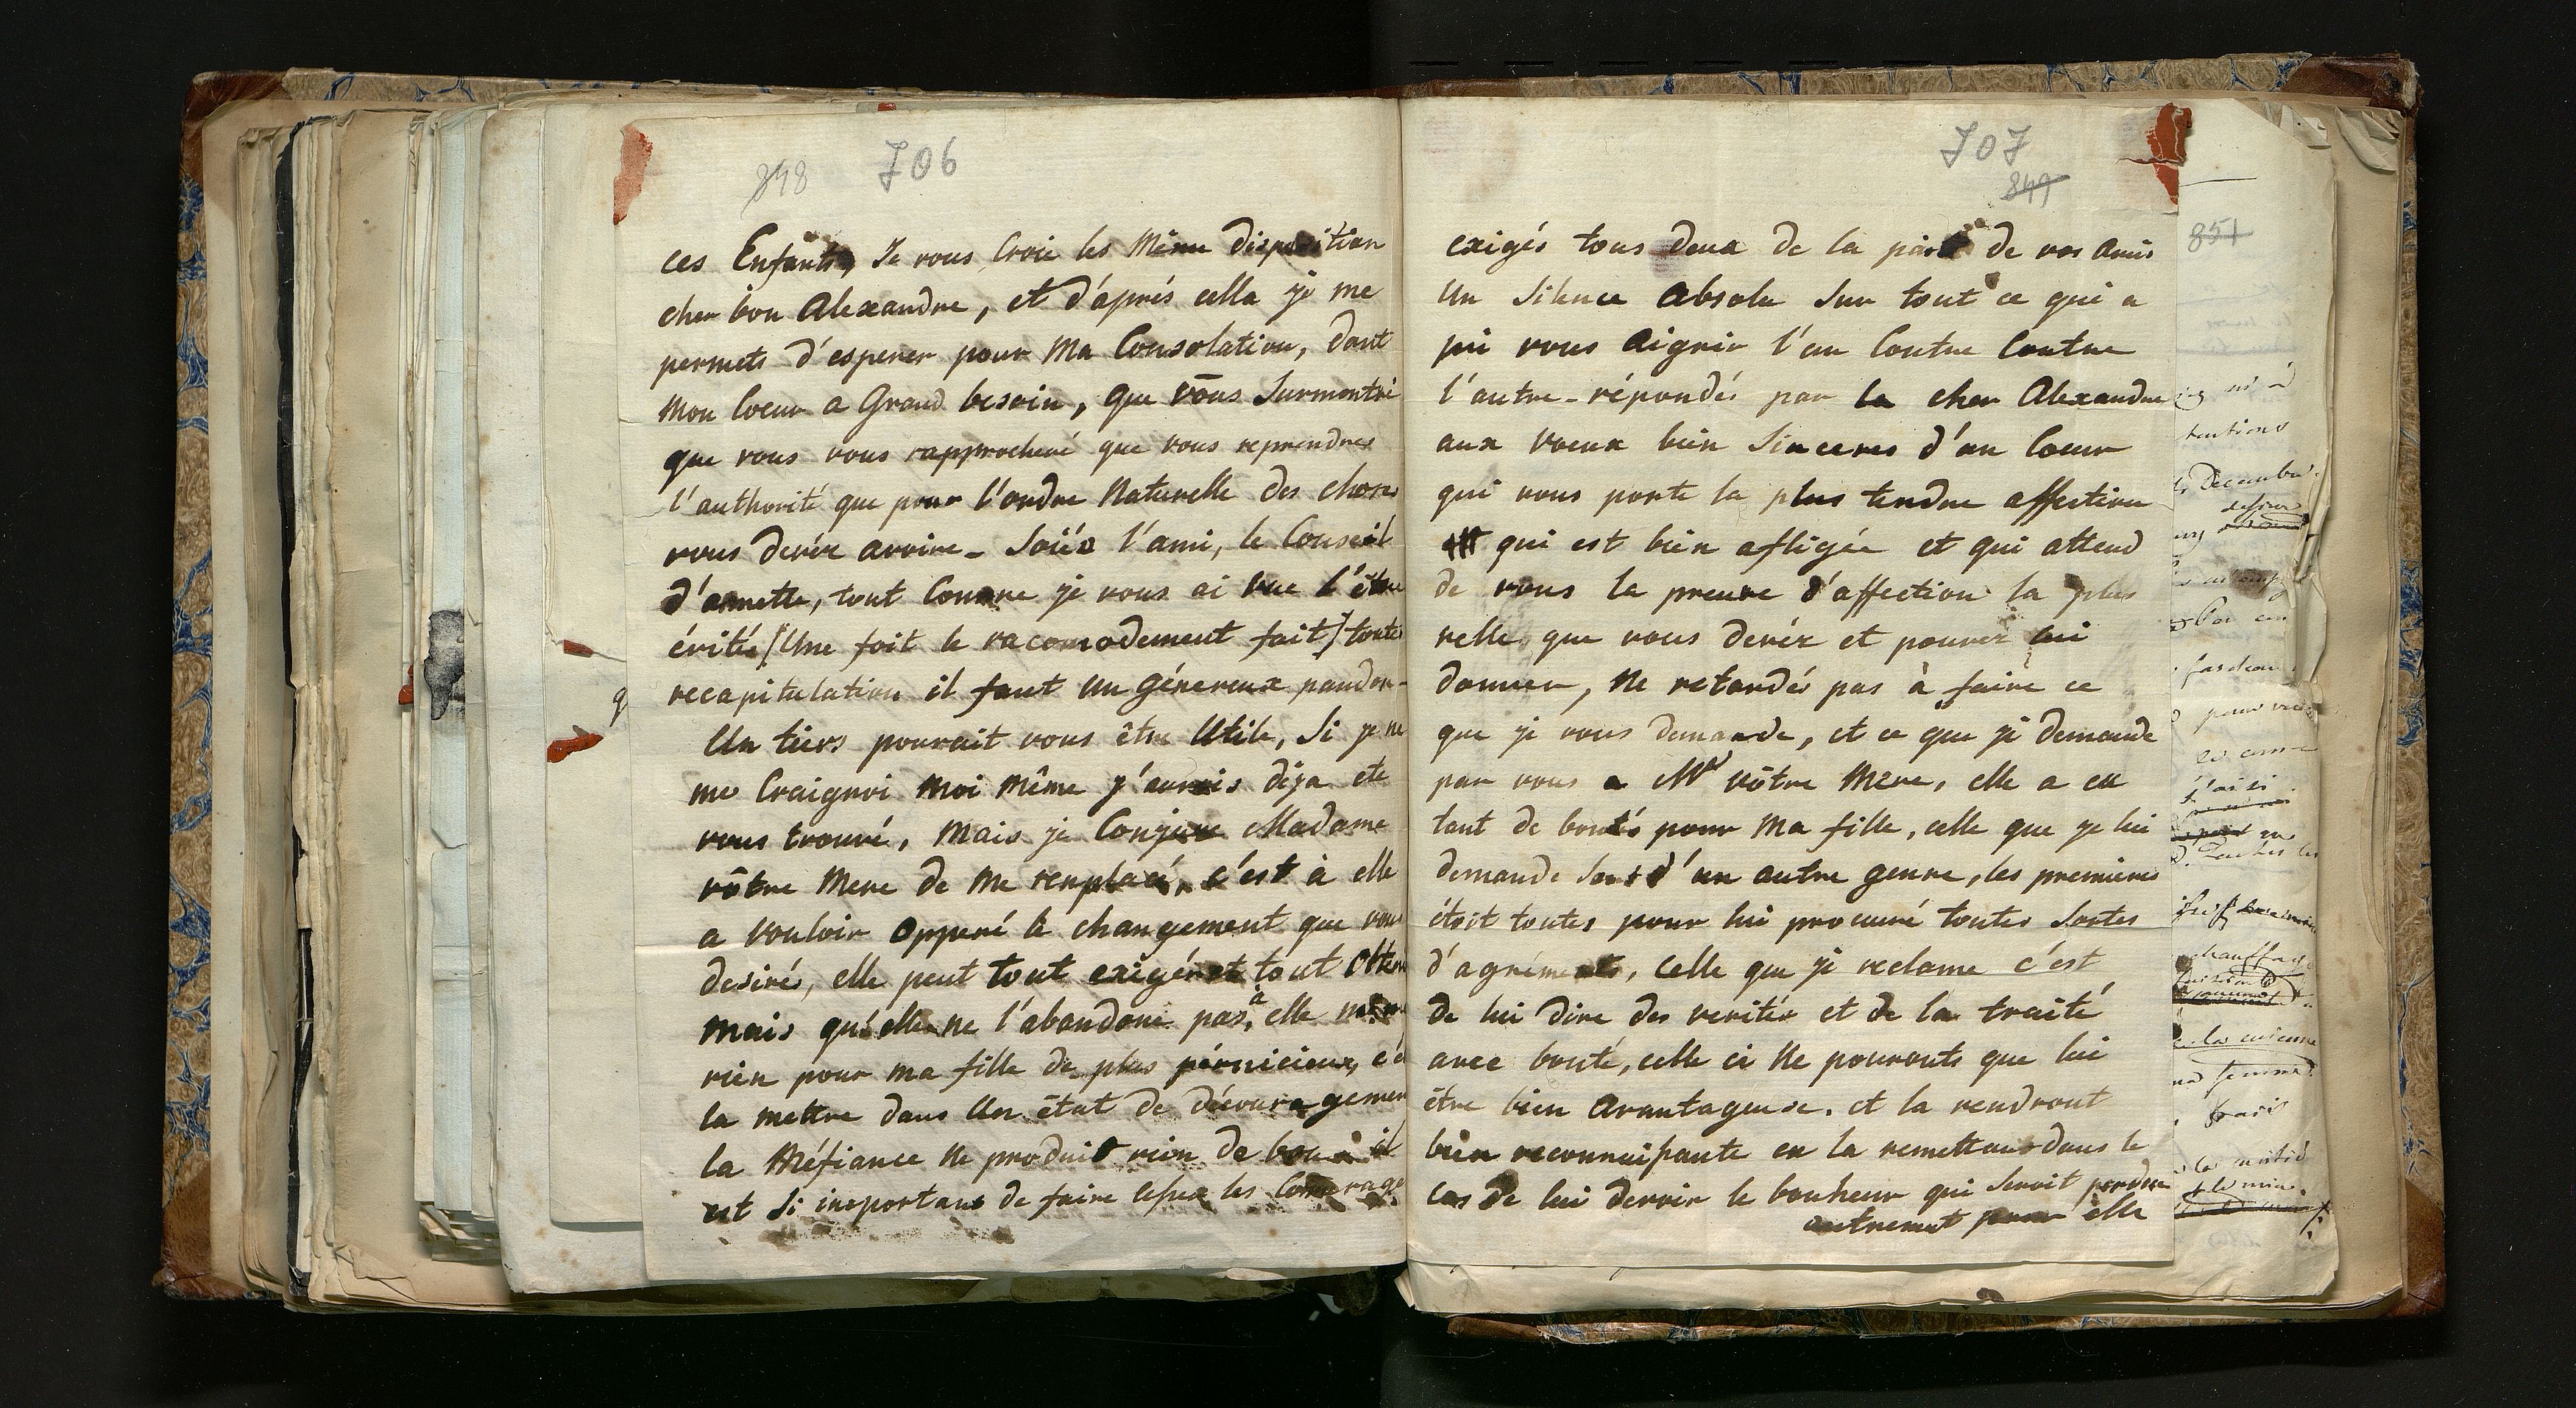 848 706
ces Enfants, Je vous Croie les Même disposition
cher bon Alexandre, et d'aprés cella je me
permets d'esperer pour Ma Consolation, dont
Mon Coeur a Grand besoin, que vous Surmontré
que vous vous rapprocheré que vous reprendres
l'authorité que pour l'ordre Naturelle des choses
vous devéz avoire - Soiés l'ami, le Conseil
d'annette, tout Comme je vous ai vue l'être
évités (Une foit le racomodement fait) toutes
recapitulation il faut un génereux pardon -
Un tiers pourait vous être Utile, Si je ne
me Craignoi Moi Même j'aurois déja ete
vous trouvé, Mais je Conjure Madame
vôtre Mere de Me remplacé, c'est à elle
a vouloir Opperé le changement que vous
desirés, elle peut tout exigér et tout Obtenir
Mais qu'elle ne l'abandone pas à elle même
rien pour ma fille de plus pérnicieux, c'est
la mettre dans Un état de décourragement
la Méfiance Ne produit rien de bon il
est Si inportans de faire cesser les Comerage
707
849
exigés tous deux de la part de vos Amis
Un Silence Absolu Sur tout ce qui a
pu vous Aigrir l'un Contre Contre
l'autre - répondés par la cher Alexandre
aux voeux bien Sinceres d'un Coeur
qui vous porte la plus tendre affection
qui est bien afligée et qui attend
de vous la preuve d'affection la plus
relle que vous devéz et pouvez lui
donner, Ne retardés pas à faire ce
que je vous demande, et ce que je demande
par vous a Md vôtre Mere, elle a eu
tant de bontés pour Ma fille, celle que je lui
demande Sont d'un autre genre, les premieres
étoit toutes pour lui procuré toutes Sortes
d'agréments, Celle que je reclame c'est
de lui dire des veritéz et de la traité
avec bonté, celle ci Ne pouronts que lui
être bien Avantageuse. et la rendront
bien reconnaissante en la remettans dans le
cas de lui devoir le bonheur qui Seroit perdue
autremut pour elle
851